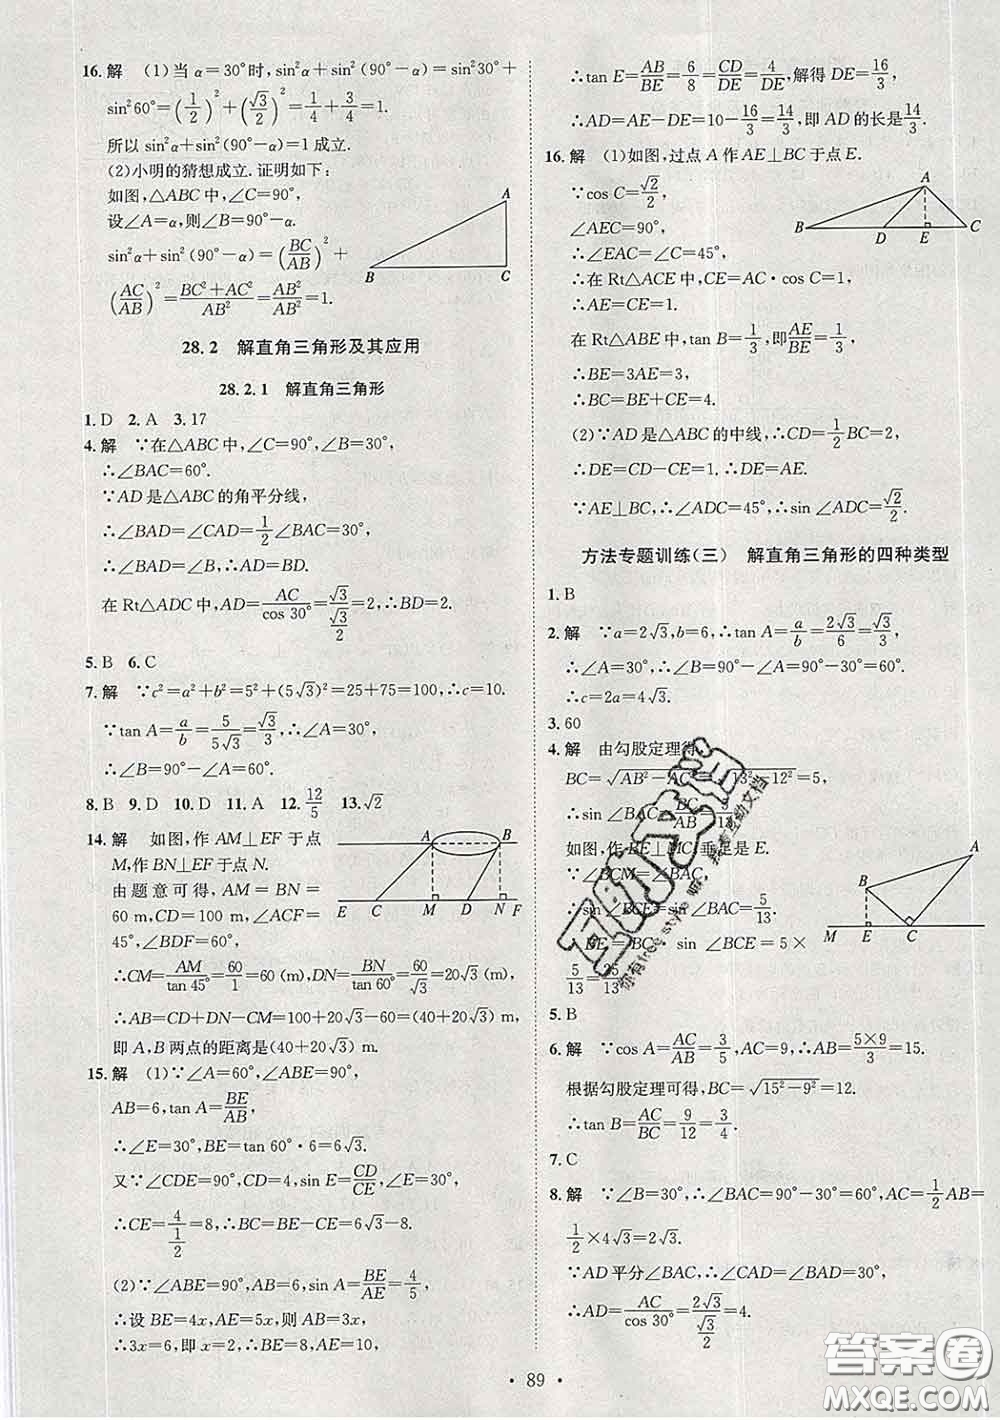 16.解 (1)当α=30°时,sin²α+sin²(90°-α)=sin²30°+
sin²60°=(1/2)²+(√3/2)²=1/4+3/4=1.
所以 sin²α+sin²(90°-α)=1 成立.
(2)小明的猜想成立.证明如下:
如图,△ABC 中,∠C=90°,
设∠A=α,则∠B=90°-α.
sin²α+sin²(90°-α)=(BC/AB)²+
(AC/AB)²=(BC²+AC²)/AB²=AB²/AB²=1.
A
B
C
28.2 解直角三角形及其应用
28.2.1 解直角三角形
1.D 2.A 3.17
4.解 ∵在△ABC 中,∠C=90°,∠B=30°,
∴∠BAC=60°.
∵AD 是△ABC 的角平分线,
∴∠BAD=∠CAD=1/2∠BAC=30°,
∴∠BAD=∠B,∴AD=BD.
在 Rt△ADC 中,AD=AC/cos 30°=√3/(√3/2)=2,∴BD=2.
5.B 6.C
7.解 ∵c²=a²+b²=5²+(5√3)²=25+75=100,∴c=10.
∵tan A=a/b=5/(5√3)=√3/3,∴∠A=30°,
∴∠B=90°-∠A=90°-30°=60°.
8.B 9.D 10.D 11.A 12.12/5 13.√2
14.解 如图,作 AM⊥EF 于点
M,作 BN⊥EF 于点 N.
由题意可得,AM=BN=
60 m,CD=100 m,∠ACF=
45°,∠BDF=60°,
A B
E C M D N F
∴CM=AM/tan 45°=60/1=60 (m),DN=BN/tan 60°=60/√3=20√3 (m),
∴AB=CD+DN-CM=100+20√3-60=(40+20√3) m,
即 A,B 两点的距离是(40+20√3) m.
15.解 (1)∵∠A=60°,∠ABE=90°,
AB=6,tan A=BE/AB,
∴∠E=30°,BE=tan 60°·6=6√3.
又∵∠CDE=90°,CD=4,sin E=CD/CE,∠E=30°,
∴CE=4/(1/2)=8,∴BC=BE-CE=6√3-8.
(2)∵∠ABE=90°,AB=6,sin A=BE/AE=4/5,
∴设 BE=4x,AE=5x,则 AB=3x,
∴3x=6,即 x=2,∴BE=8,AE=10,
∴tan E=AB/BE=6/8=CD/DE=4/DE,解得 DE=16/3,
∴AD=AE-DE=10-16/3=14/3,即 AD 的长是14/3.
16.解 (1)如图,过点 A 作 AE⊥BC 于点 E.
∵cos C=√2/2,
∠AEC=90°,
∴∠EAC=∠C=45°,
∴在 Rt△ACE 中,CE=AC·cos C=1,
∴AE=CE=1.
A
B D E C
在 Rt△ABE 中,tan B=1/3,即AE/BE=1/3,
∴BE=3AE=3,
∴BC=BE+CE=4.
(2)∵AD 是△ABC 的中线,∴CD=1/2BC=2,
∴DE=CD-CE=1,∴DE=AE.
∵AE⊥BC,∴∠ADC=45°,∴sin∠ADC=√2/2.
方法专题训练(三) 解直角三角形的四种类型
1.B
2.解 ∵a=2√3,b=6,∴tan A=a/b=2√3/6=√3/3,
∴∠A=30°,∴∠B=90°-∠A=90°-30°=60°.
∴c=2a=4√3.
3.60
4.解 由勾股定理得,
BC=√(AB²-AC²)=√(13²-12²)=5,
∴sin∠BAC=BC/AB=5/13.
如图,作 BE⊥MC,垂足是 E.
∵∠BCM=∠BAC,
∴sin∠BCE=sin∠BAC=5/13.
BE=BC·sin∠BCE=5×
5/13=25/13.
A
B
M E C
5.B
6.解 ∵cos A=AC/AB=3/5,AC=9,∴AB=(5×9)/3=15.
根据勾股定理可得,BC=√(15²-9²)=12.
∴tan B=AC/BC=9/12=3/4.
7.C
8.解 ∵∠B=30°,∴∠BAC=90°-30°=60°,AC=1/2AB=
1/2×4√3=2√3.
∵AD 平分∠BAC,∴∠CAD=30°,
∴AD=AC/cos 30°=2√3/(√3/2)=4.
• 89 •
答案圈
MXQE.COM